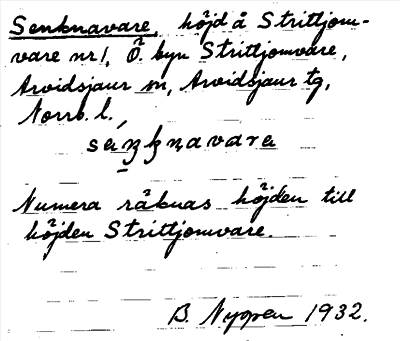 Senknavare, höjd å Strittjom-
vare nr 1, Ö. byn Strittjomvare,
Arvidsjaur sn, Arvidsjaur tg,
Norrb. l.
Numera räknas höjden till
höjden Strittjomvare.
B. Nygren 1932.